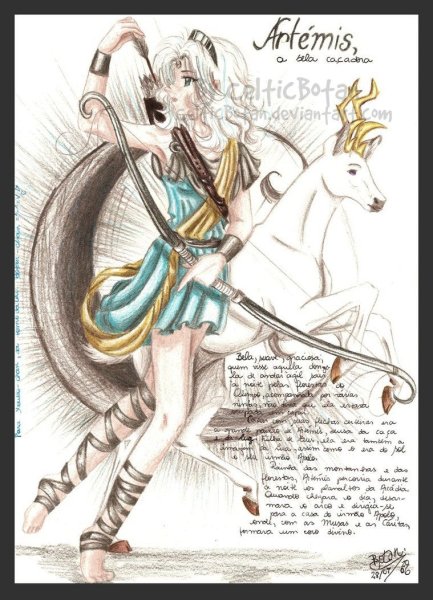 Artémis,
a bela caçadora
CelticBotan
celticBotan.deviantart.com
Bela, suave, graciosa,
quem visse aquela donze-
la de andar ágil sair
à noite pelas florestas do
Olimpo, acompanhada por várias
ninfas, não diria que ela estava
caçar.
com suas flechas certeiras era
a grande Artémis, deusa da caça
Filha de Zeus, ela era também a
da lua, assim como o era do sol
o seu irmão Apolo.
Rainha das montanhas e das
florestas, Artémis percorria durante
a noite os planaltos da Arcádia
Quando chegava o dia, desar-
mava o arco e dirigia-se
para a casa do irmão Apolo,
onde, com as Musas e as Cárites,
formava um coro divino.